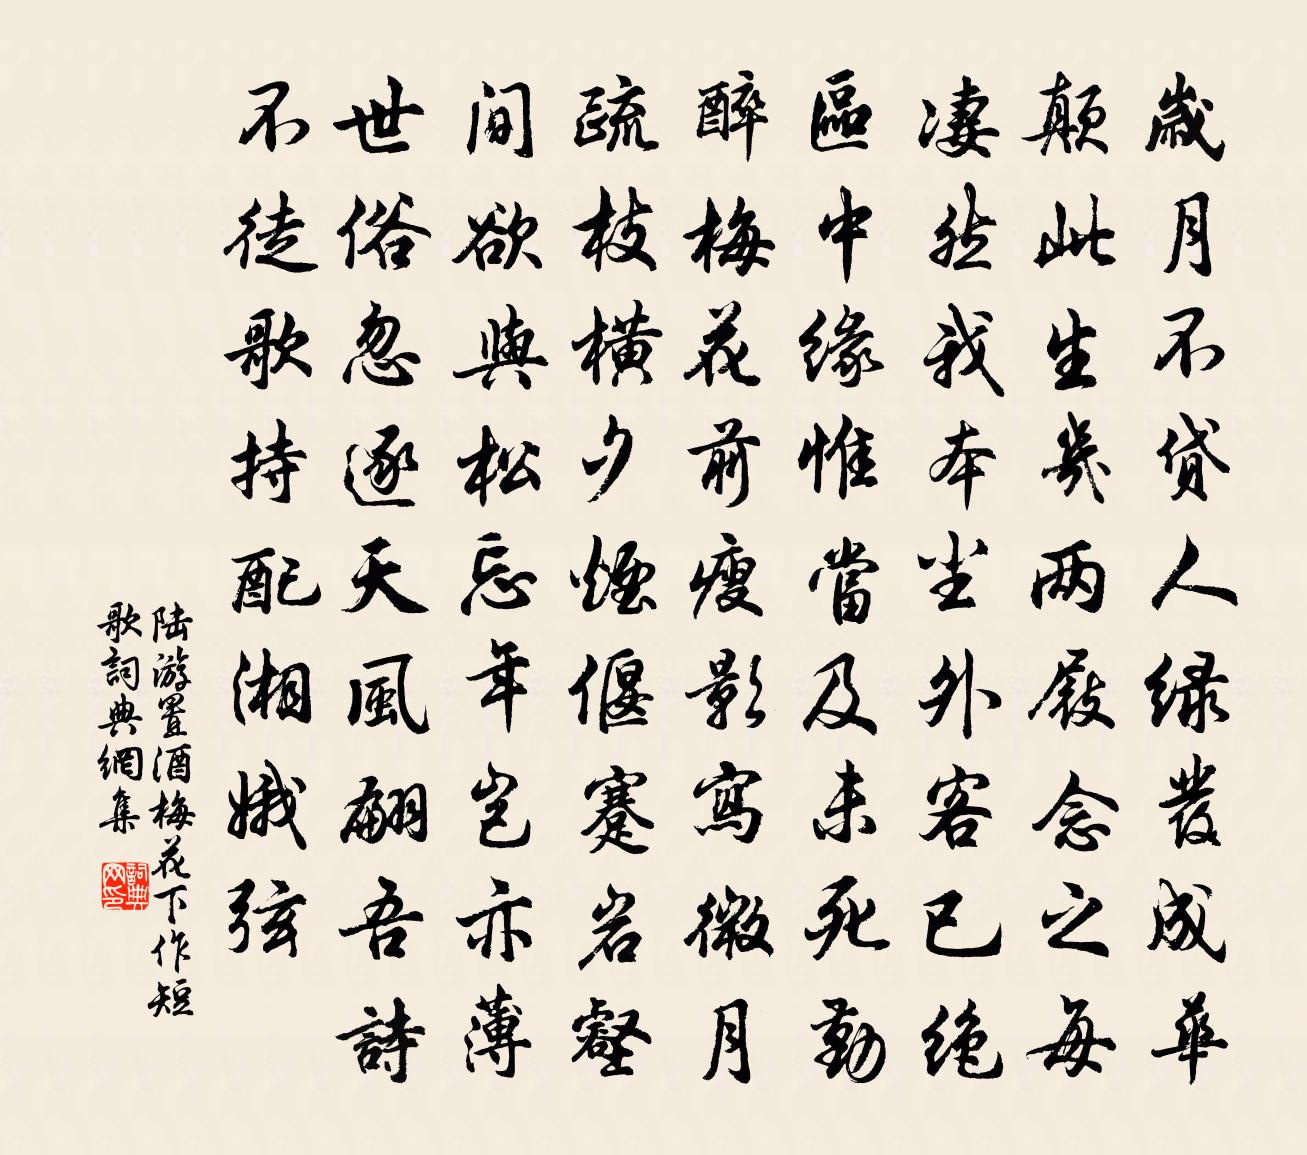 歲月不貸人綠發成華
顛此生幾两屐念之每
凄然我本尘外客已絕
區中緣惟當及未死勤
醉梅花前瘦影寫微月
疏枝橫夕煙偃蹇岩壑
間欲與松忘年豈亦薄
世俗忽逐天風翩吾詩
不徒歌持配湘娥弦
陆游置酒梅花下作短
歌詞典網集
詞典网印